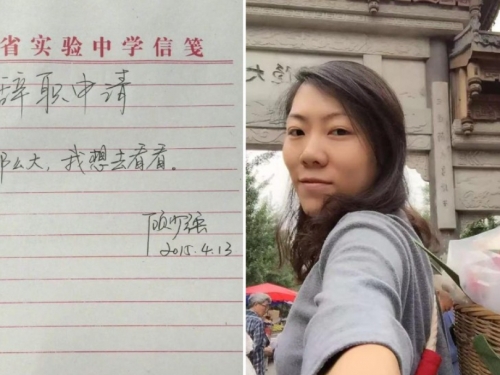 省实验中学信笺
辞职申请
那么大，我想去看看。
顾少强
2015.4.13